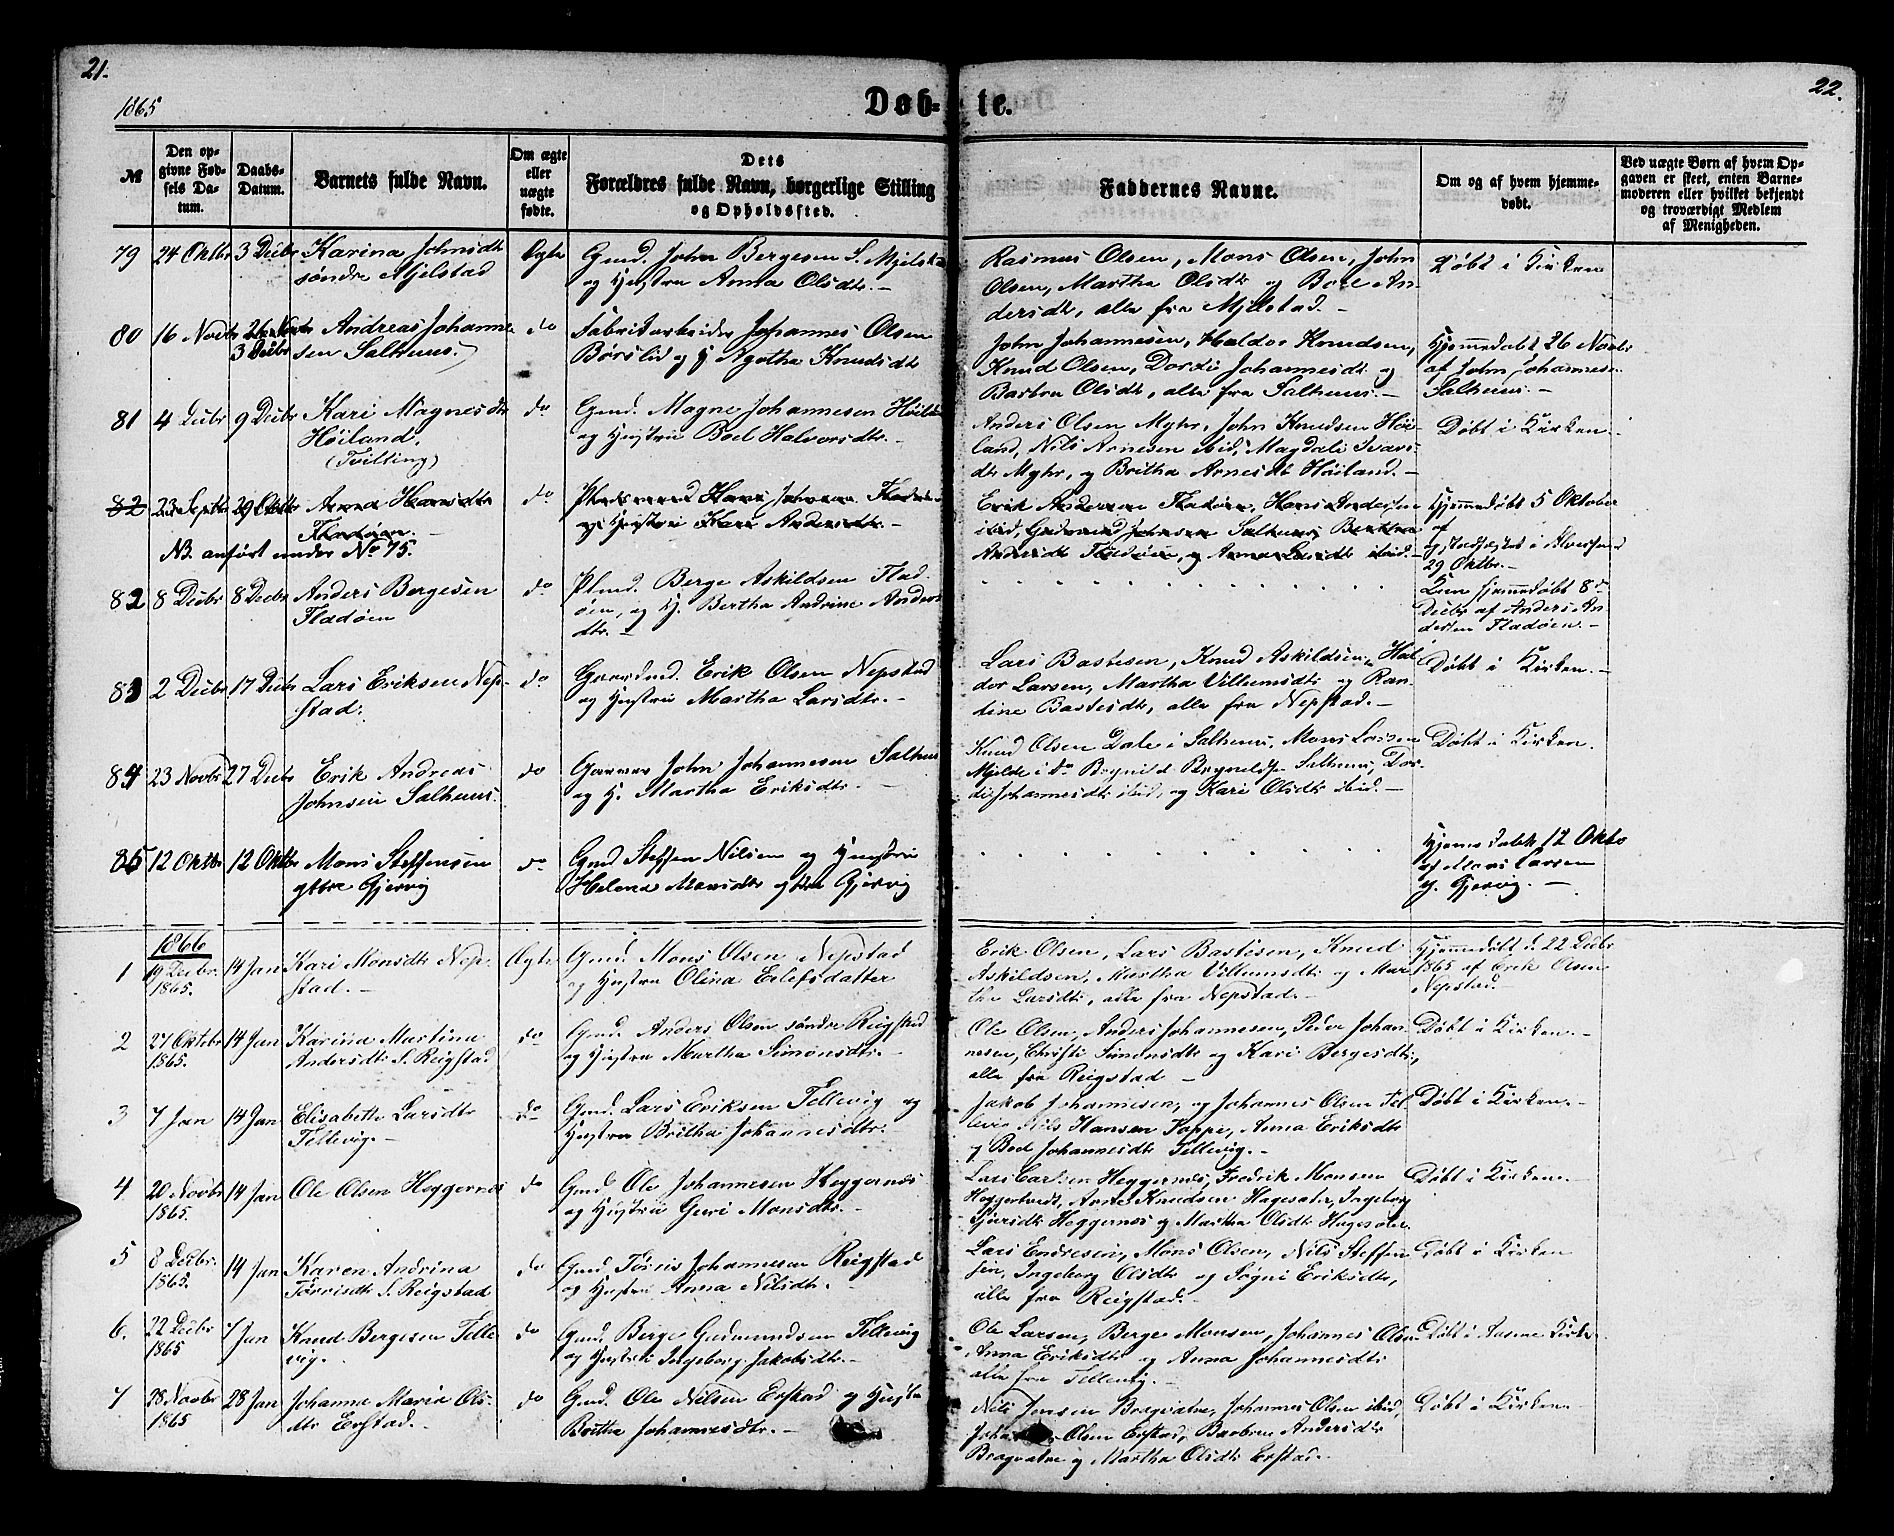 21.
22.
1865
Døb-
te.
№
Den op-
givne Fød-
sels Da-
tum.
Daabs-
Datum.
Barnets fulde Navn.
Om ægte
eller
uægte
fødte.
Dets
Forældres fulde Navn, borgerlige Stilling
og Opholdssted.
Faddernes Navne.
Om og af hvem hjemme-
døbt.
Ved uægte Børn af hvem Op-
gaven er skeet, enten Barne-
moderen eller hvilket bekjendt
og troværdigt Medlem
af Menigheden.
79 24 Oktbr 3 Decbr Karina Johnsdtr Ægte Gmd. John Bergesen S. Mjelstad Rasmus Olsen, Mons Olsen, John Døbt i Kirken
søndre Mjelstad og Hustru Anna Olsdtr. Olsen, Martha Olsdtr og Boel An-
dersdtr, alle fra Mjelstad.
80 16 Novbr 26 Novbr Andreas Johanne- do Fabrikarbeider Johannes Olsen John Johannesen, Haldor Knudsen, Hjemmedøbt 26 Novbr
3 Decbr sen Salhuus. Børslid og H. Agatha Knudsdtr Knud Olsen, Dorthi Johannesdtr og af John Johannesen
Barbra Olsdtr, alle fra Salhuus. Salhuus.
81 4 Decbr 9 Decbr Kari Magnesdtr do Gmd. Magne Johannesen Høiland Anders Olsen Myhr, John Knudsen Høi- Døbt i Kirken.
Høiland. og Hustru Boel Halvorsdtr. land, Nils Arnesen ibid, Magdali Ivars-
(Tvilling) dtr Myhr, og Britha Arnesdtr Høiland.
82 23 Septbr 29 Oktbr Anna Hansdtr do Pladsmand Hans Johnsen Fladøen Erik Andersen Fladøen, Hans Andersen Hjemmedøbt 5 Oktober
Fladøen. og Hustru Kari Andersdtr. ibid, Gudmund Johnsen Salhuus, Berthe af
NB. anført under No 75. Andersdtr Fladøen, og Anna Larsdtr ibid. og stadfæstet i
29 Oktbr.
82 8 Decbr 8 Decbr Anders Bergesen do Plmd. Berge Askildsen Flad- Kun hjemmedøbt 8de
Fladøen øen, og H. Bertha Andrine Anders- Decbr af Anders An-
dtr. dersen Fladøen.
83 2 Decbr 17 Decbr Lars Eriksen Nep- do Gaardmd. Erik Olsen Nepstad Lars Bastesen, Knud Askildsen, Hal- Døbt i Kirken.
stad. og Hustru Martha Larsdtr. dor Larsen, Martha Villumsdtr og Ran-
tine Bastesdtr, alle fra Nepstad.
84 23 Novbr 27 Decbr Erik Andreas do Garver John Johannesen Salhuus Knud Olsen Dale i Salhuus, Mons Larsen Døbt i Kirken.
Johnsen Salhuus. og H. Martha Eriksdtr. Mjelde i do Brynild Brynildsen Salhuus, Dor-
Johannesdtr ibid, og Kari Olsdtr ibid.
85 12 Oktbr 12 Oktbr Mons Steffensen do Gmd Steffen Nilsen og Hustru Hjemmedøbt 12 Oktb
yttre Gjervig Helena Monsdtr yttre Gjervig af Mons Larsen
y. Gjervig.
1866
1 19 Decbr 14 Jan Kari Monsdtr Nep- Ægte Gmd. Mons Olsen Nepstad Erik Olsen, Lars Bastesen, Knud Hjemmedøbt d. 22 Decbr
1865. stad. og Hustru Olina Erlefsdatter Askildsen, Martha Villumsdtr og Mar- 1865 af Erik Olsen
tha Larsdtr, alle fra Nepstad. Nepstad.
2 27 Oktbr 14 Jan Karina Martina do Gmd. Anders Olsen søndre Reigstad Ole Olsen, Anders Johannesen, Peder Johan- Døbt i Kirken.
1865. Andersdtr S. Reigstad og Hustru Martha Simonsdtr. nesen, Christi Simonsdtr og Kari Bergesdtr,
alle fra Reigstad
3 7 Jan 14 Jan Elisabetta Larsdtr do Gmd. Lars Eriksen Tellevig og Jakob Johannesen, og Johannes Olsen Tel- Døbt i Kirken.
Tellevig. Hustru Britha Johannesdtr. levig Nils Hansen Toppe, Anna Eriksdtr
og Boel Johannesdtr Tellevig.
4 20 Novbr 14 Jan Ole Olsen Heggernes do Gmd Ole Johannesen Heggernes Lars Larsen Heggernes, Fredrik Monsen Døbt i Kirken.
1865. og Hustru Guri Monsdtr. Arne Knudsen Hagesæter, Ingeborg
Heggernes og Martha Olsdtr Hagesæter.
5 8 Decbr. 14 Jan Karen Andrina do Gmd Tørris Johannesen Reigstad Lars Endresen, Mons Olsen, Nils Steffen- Døbt i Kirken
1865. Tørrisdtr S. Reigstad og Hustru Anna Nilsdtr. sen, Ingeborg Olsdtr og Søgni Eriksdtr,
alle fra Reigstad.
6. 22 Decbr 7 Jan Knud Bergesen Telle- do Gmd. Berge Gudmundsen Tellevig Ole Larsen, Berge Monsen, Johannes Olsen Døbt i Aasene Kirke
1865 vig. og Hustru Ingeborg Jakobsdtr. Anna Eriksdtr og Anna Johannesdtr
alle fra Tellevig.
7 28 Novbr 28 Jan Johanna Maria Ols- do Gmd. Ole Nilsen Erstad og Hustru Nils Jensen Bragvatne, Johannes Olsen ibid, Døbt i Kirken.
1865 dtr Erstad. Britha Johannesdtr. Olsen Erstad, Barbra Andersdtr
Bragvatne og Martha Olsdtr Erstad.